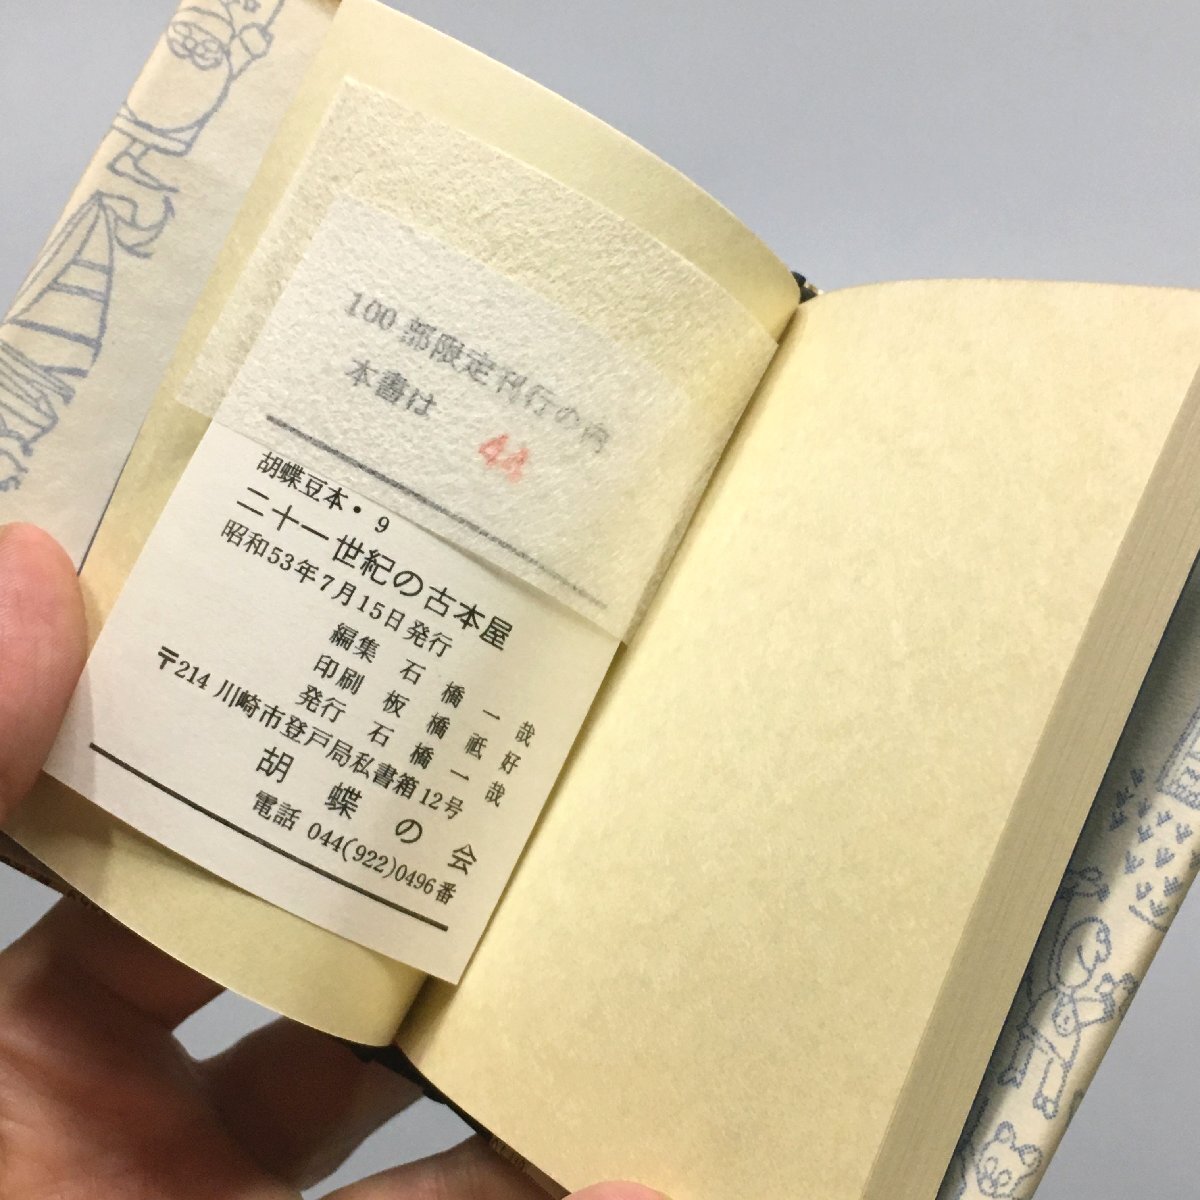 100部限定刊行の内
本書は 44
胡蝶豆本・9
二十一世紀の古本屋
昭和53年7月15日発行
編集 石橋一哉
印刷 板橋祗好
発行 石橋一哉
〒214 川崎市登戸局私書箱12号
胡蝶の会
電話 044(922)0496番